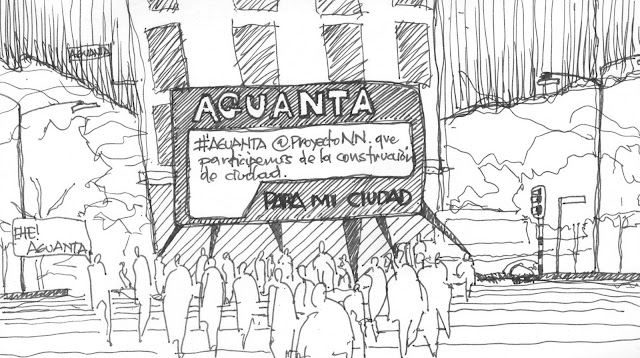 AGUANTA
AGUANTA
#AGUANTA @ProyectoNN. que
participemos de la construcción
de ciudad.
PARA MI CIUDAD
EHE!
AGUANTA